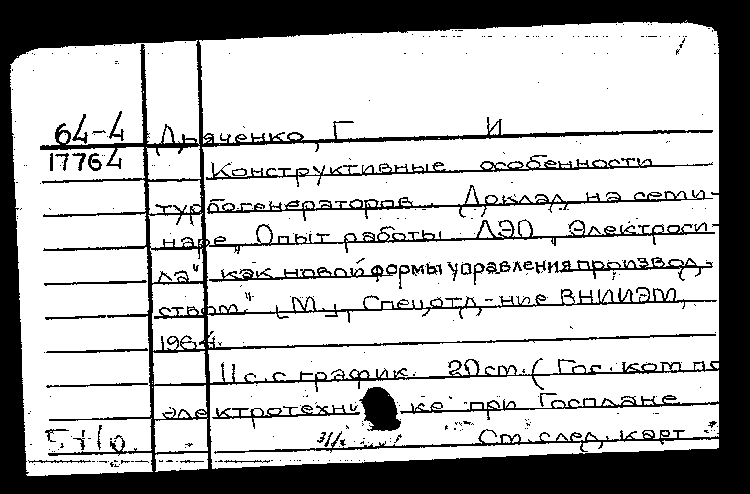 64-4 Дьяченко, Г И
17764 Конструктивные особенности
турбогенераторов. Доклад на семи-
наре „Опыт работы ЛЭО „Электроси-
ла" как новой формы управления производ-
ством." [М.], Спецотд-ние ВНИИЭМ,
1964.
11 с. с график. 20 см. (Гос. ком по
электротехнике при Госплане
См. след. карт